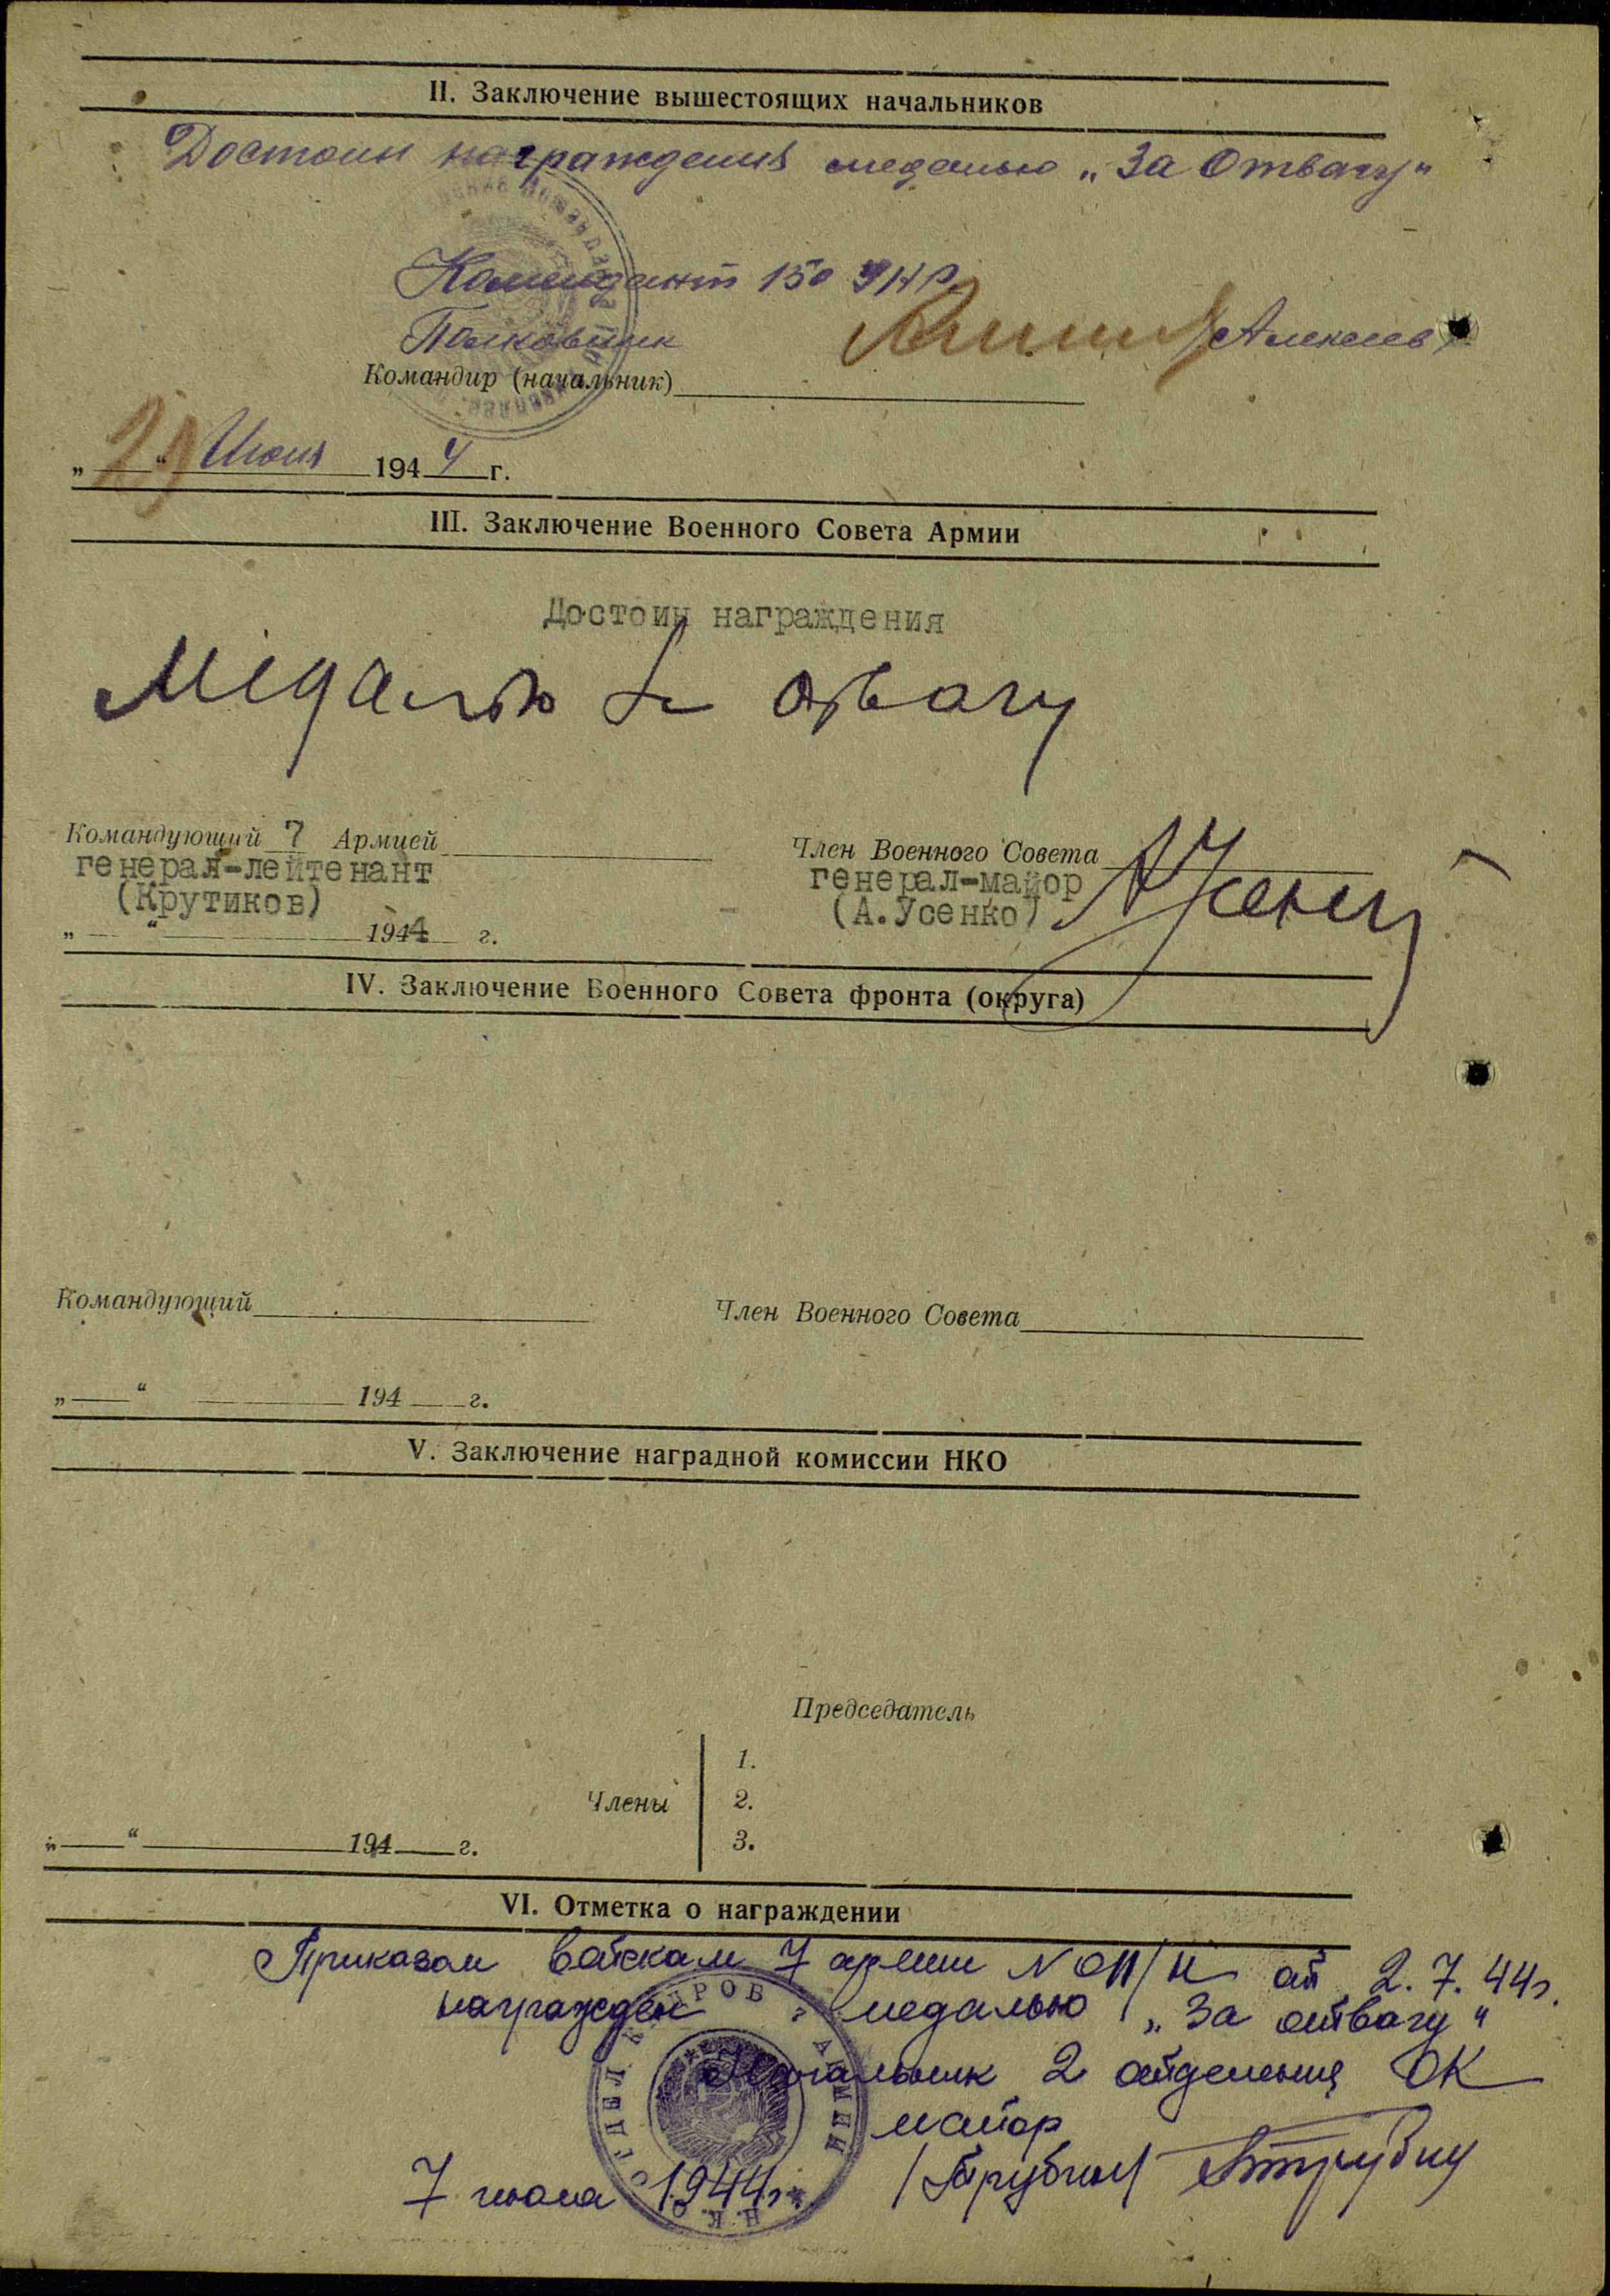 II. Заключение вышестоящих начальников
Достоин награждения медалью „За Отвагу“
Комендант 150 УНР
Полковник Алексеев
Командир (начальник)
„ “ Июня 1944 г.
III. Заключение Военного Совета Армии
Достоин награждения
Медалью За отвагу
Командующий 7 Армией Член Военного Совета
генерал-лейтенант генерал-майор
(Крутиков) (А.Усенко)
„ “ 1944 г.
IV. Заключение Военного Совета фронта (округа)
Командующий Член Военного Совета
„ “ 194 г.
V. Заключение наградной комиссии НКО
Председатель
1.
Члены 2.
3.
„ “ 194 г.
VI. Отметка о награждении
Приказом войскам 7 армии N 011/н от 2.7.44г.
награжден медалью „За отвагу“
Начальник 2 отделения ОК
майор
7 июля 1944г.
ОТДЕЛ КАДРОВ 7 АРМИИ
Н.К.О.